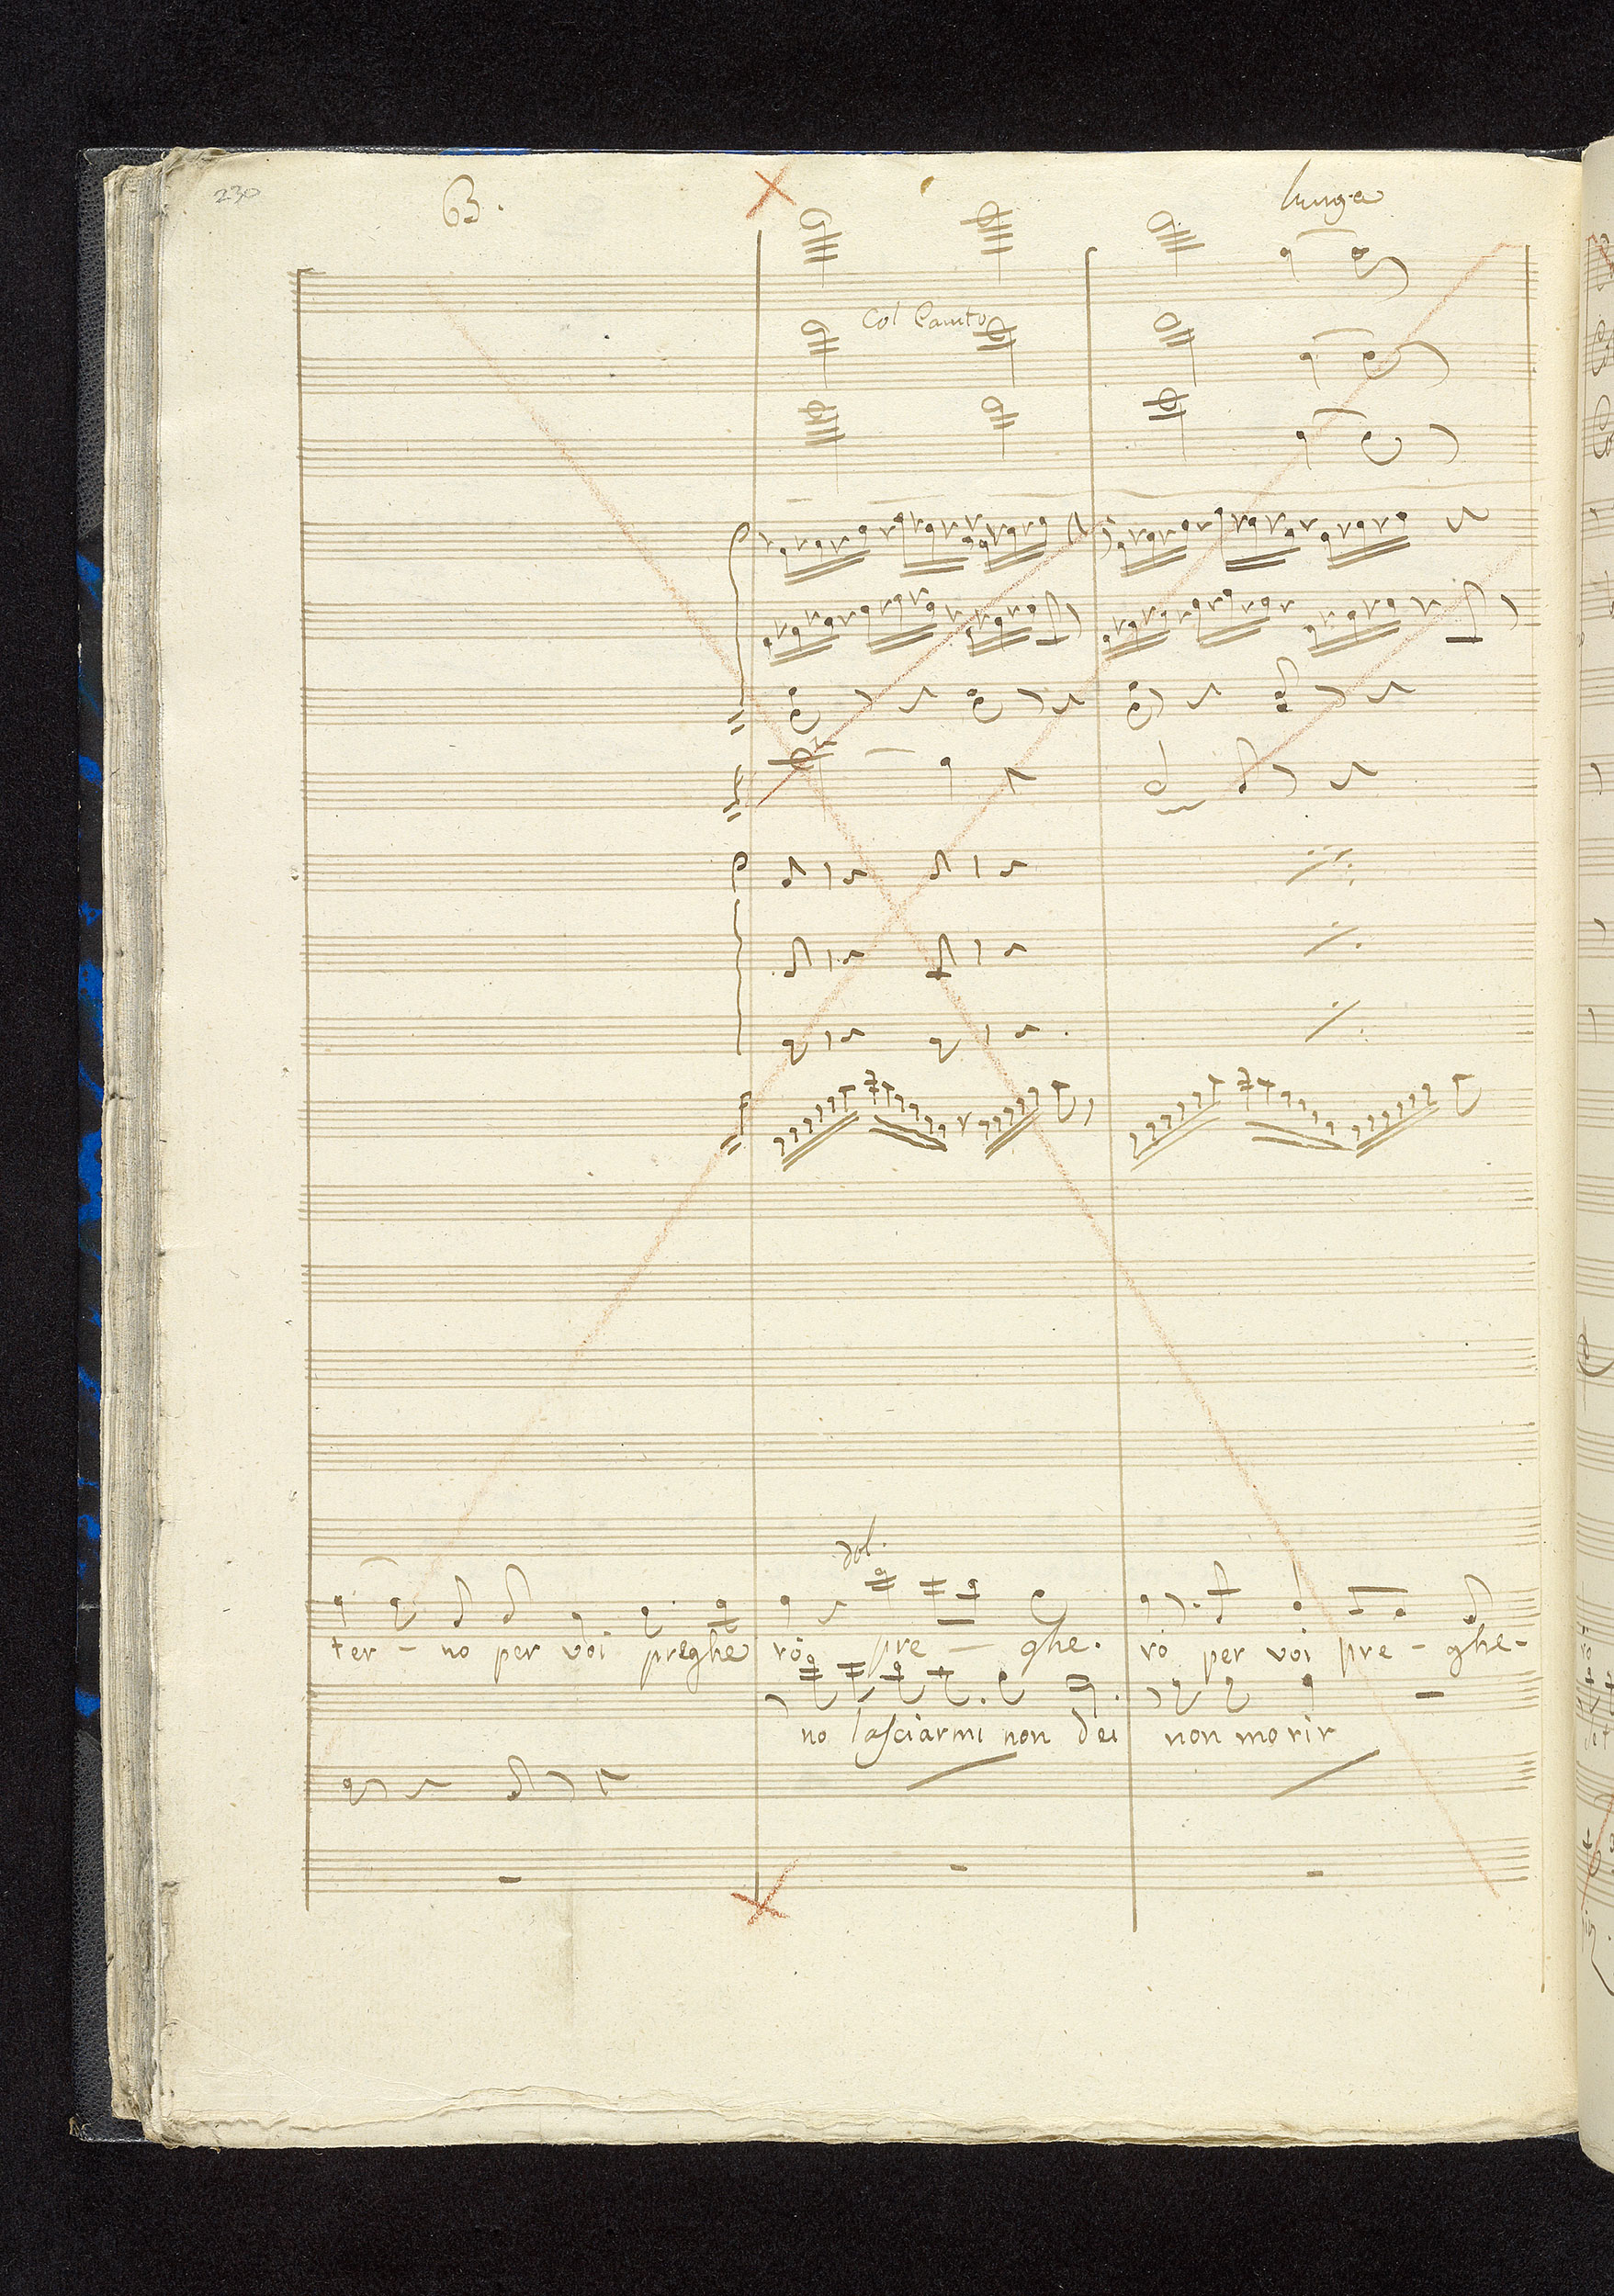 230
63.
lunga
Col Canto
dol.
ter - no per voi preghe rò pre - ghe. rò per voi pre - ghe-
no lasciarmi non dei non morir